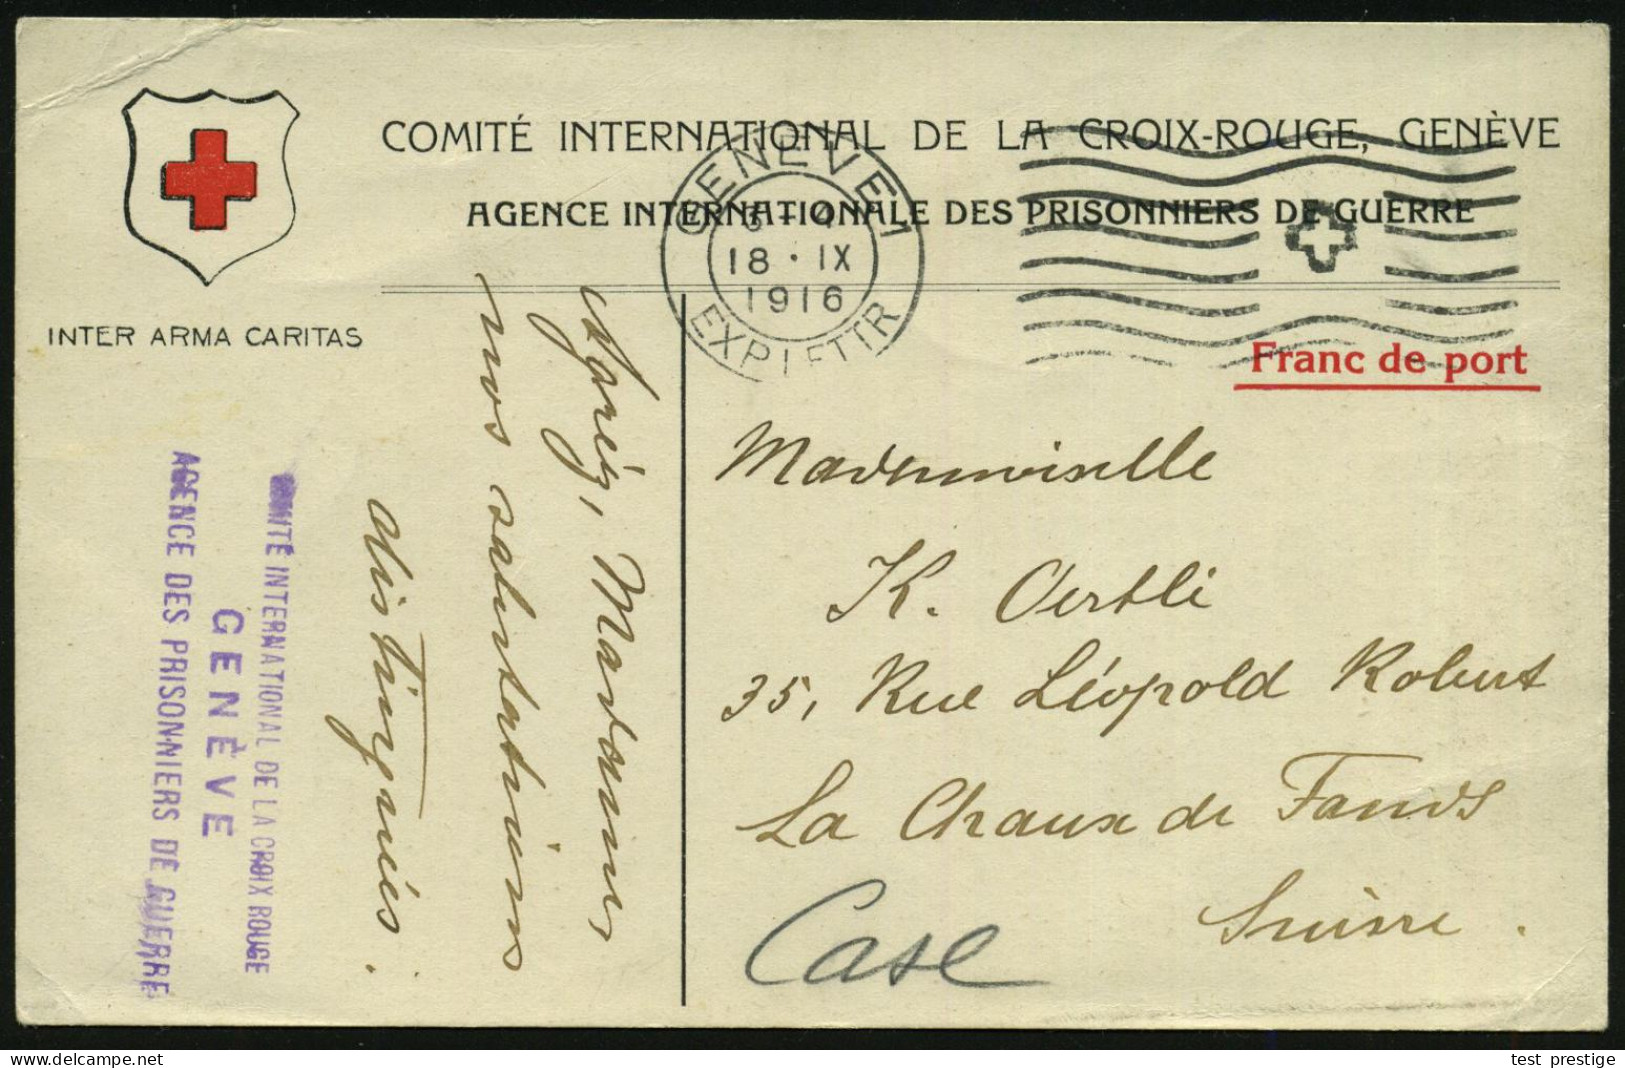 COMITÉ INTERNATIONAL DE LA CROIX-ROUGE, GENÈVE
AGENCE INTERNATIONALE DES PRISONNIERS DE GUERRE
INTER ARMA CARITAS
GENÈVE 1
18 · IX
1916
EXP. LETTR
Franc de port
Mademoiselle
K. Oertli
35, Rue Léopold Robert
La Chaux de Fonds
Suisse.
Case
Agréez, Madame,
nos salutations
distinguées.
COMITÉ INTERNATIONAL DE LA CROIX ROUGE
GENÈVE
AGENCE DES PRISONNIERS DE GUERRE
test prestige